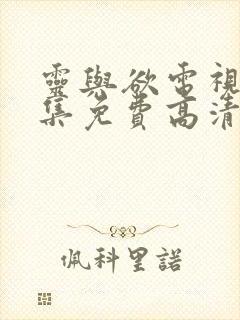 靈與欲電視
集免費高清
佩科里諾